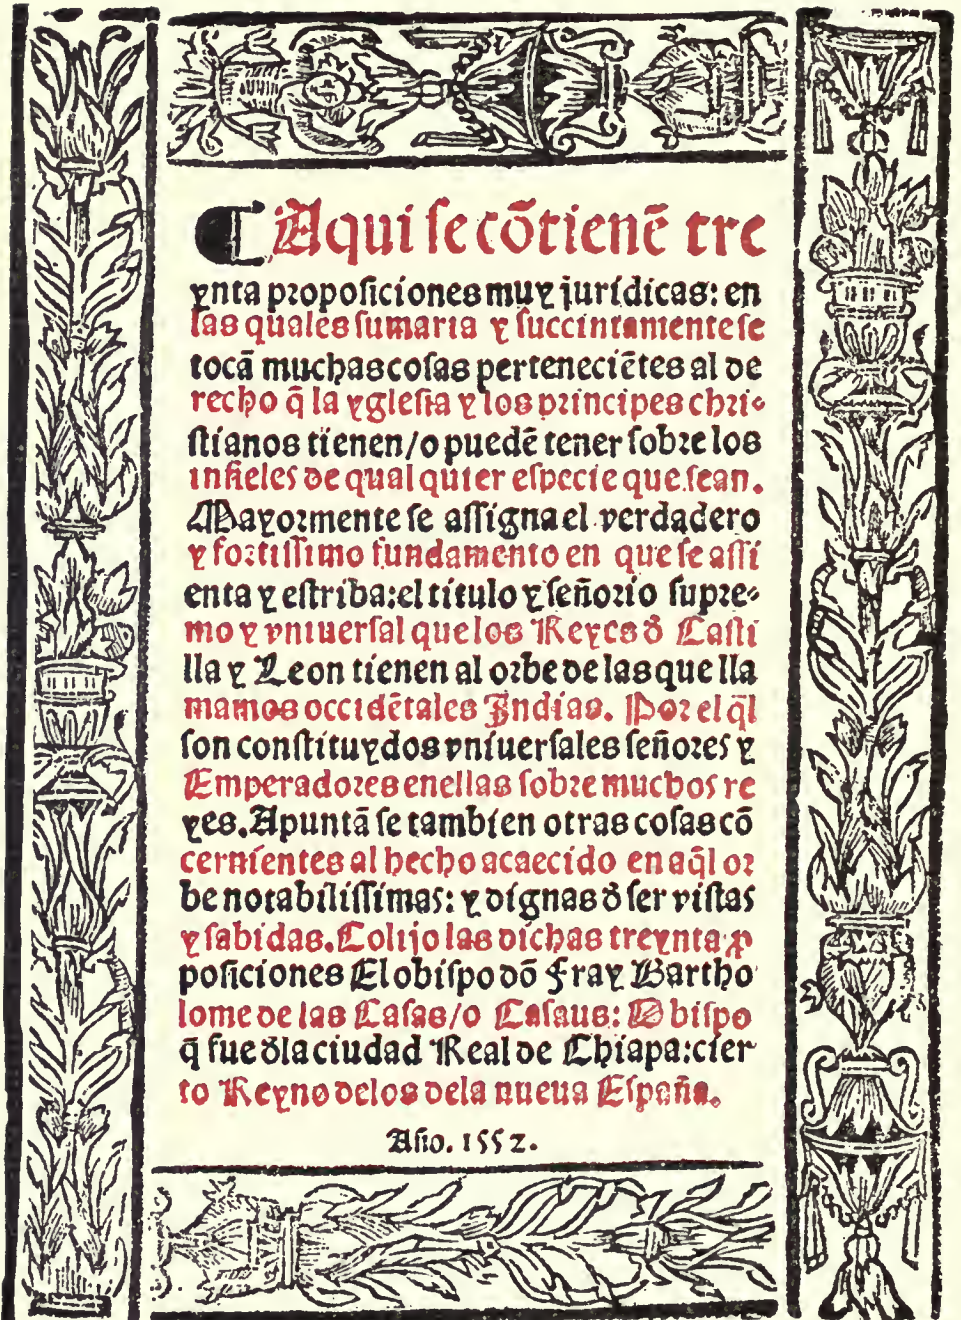 ¶ Aqui se cõtienẽ tre
ynta proposiciones muy juridicas: en
las quales sumaria y succintamente se
tocã muchas cosas perteneciẽtes al de
recho q̃ la yglesia y los principes chri-
stianos tienen/o puedẽ tener sobre los
infieles de qual quier especie que sean.
Mayormente se assigna el verdadero
y fortissimo fundamento en que se assi
enta y estriba: el titulo y señorio supre-
mo y vniuersal que los Reyes đ Casti
lla y Leon tienen al orbe de las que lla
mamos occidẽtales Indias. Por el q̃l
son constituydos vniuersales señores y
Emperadores enellas sobre muchos re
yes. Apuntã se tambien otras cosas cõ
cernientes al hecho acaecido en aq̃l or
be notabilissimas: y dignas đ ser vistas
y sabidas. Colijo las dichas treynta ꝓ
posiciones El obispo dõ Fray Bartho
lome de las Casas/o Casaus: Obispo
q̃ fue đla ciudad Real de Chiapa: cier
to Reyno delos dela nueua España.
Año. 1552.